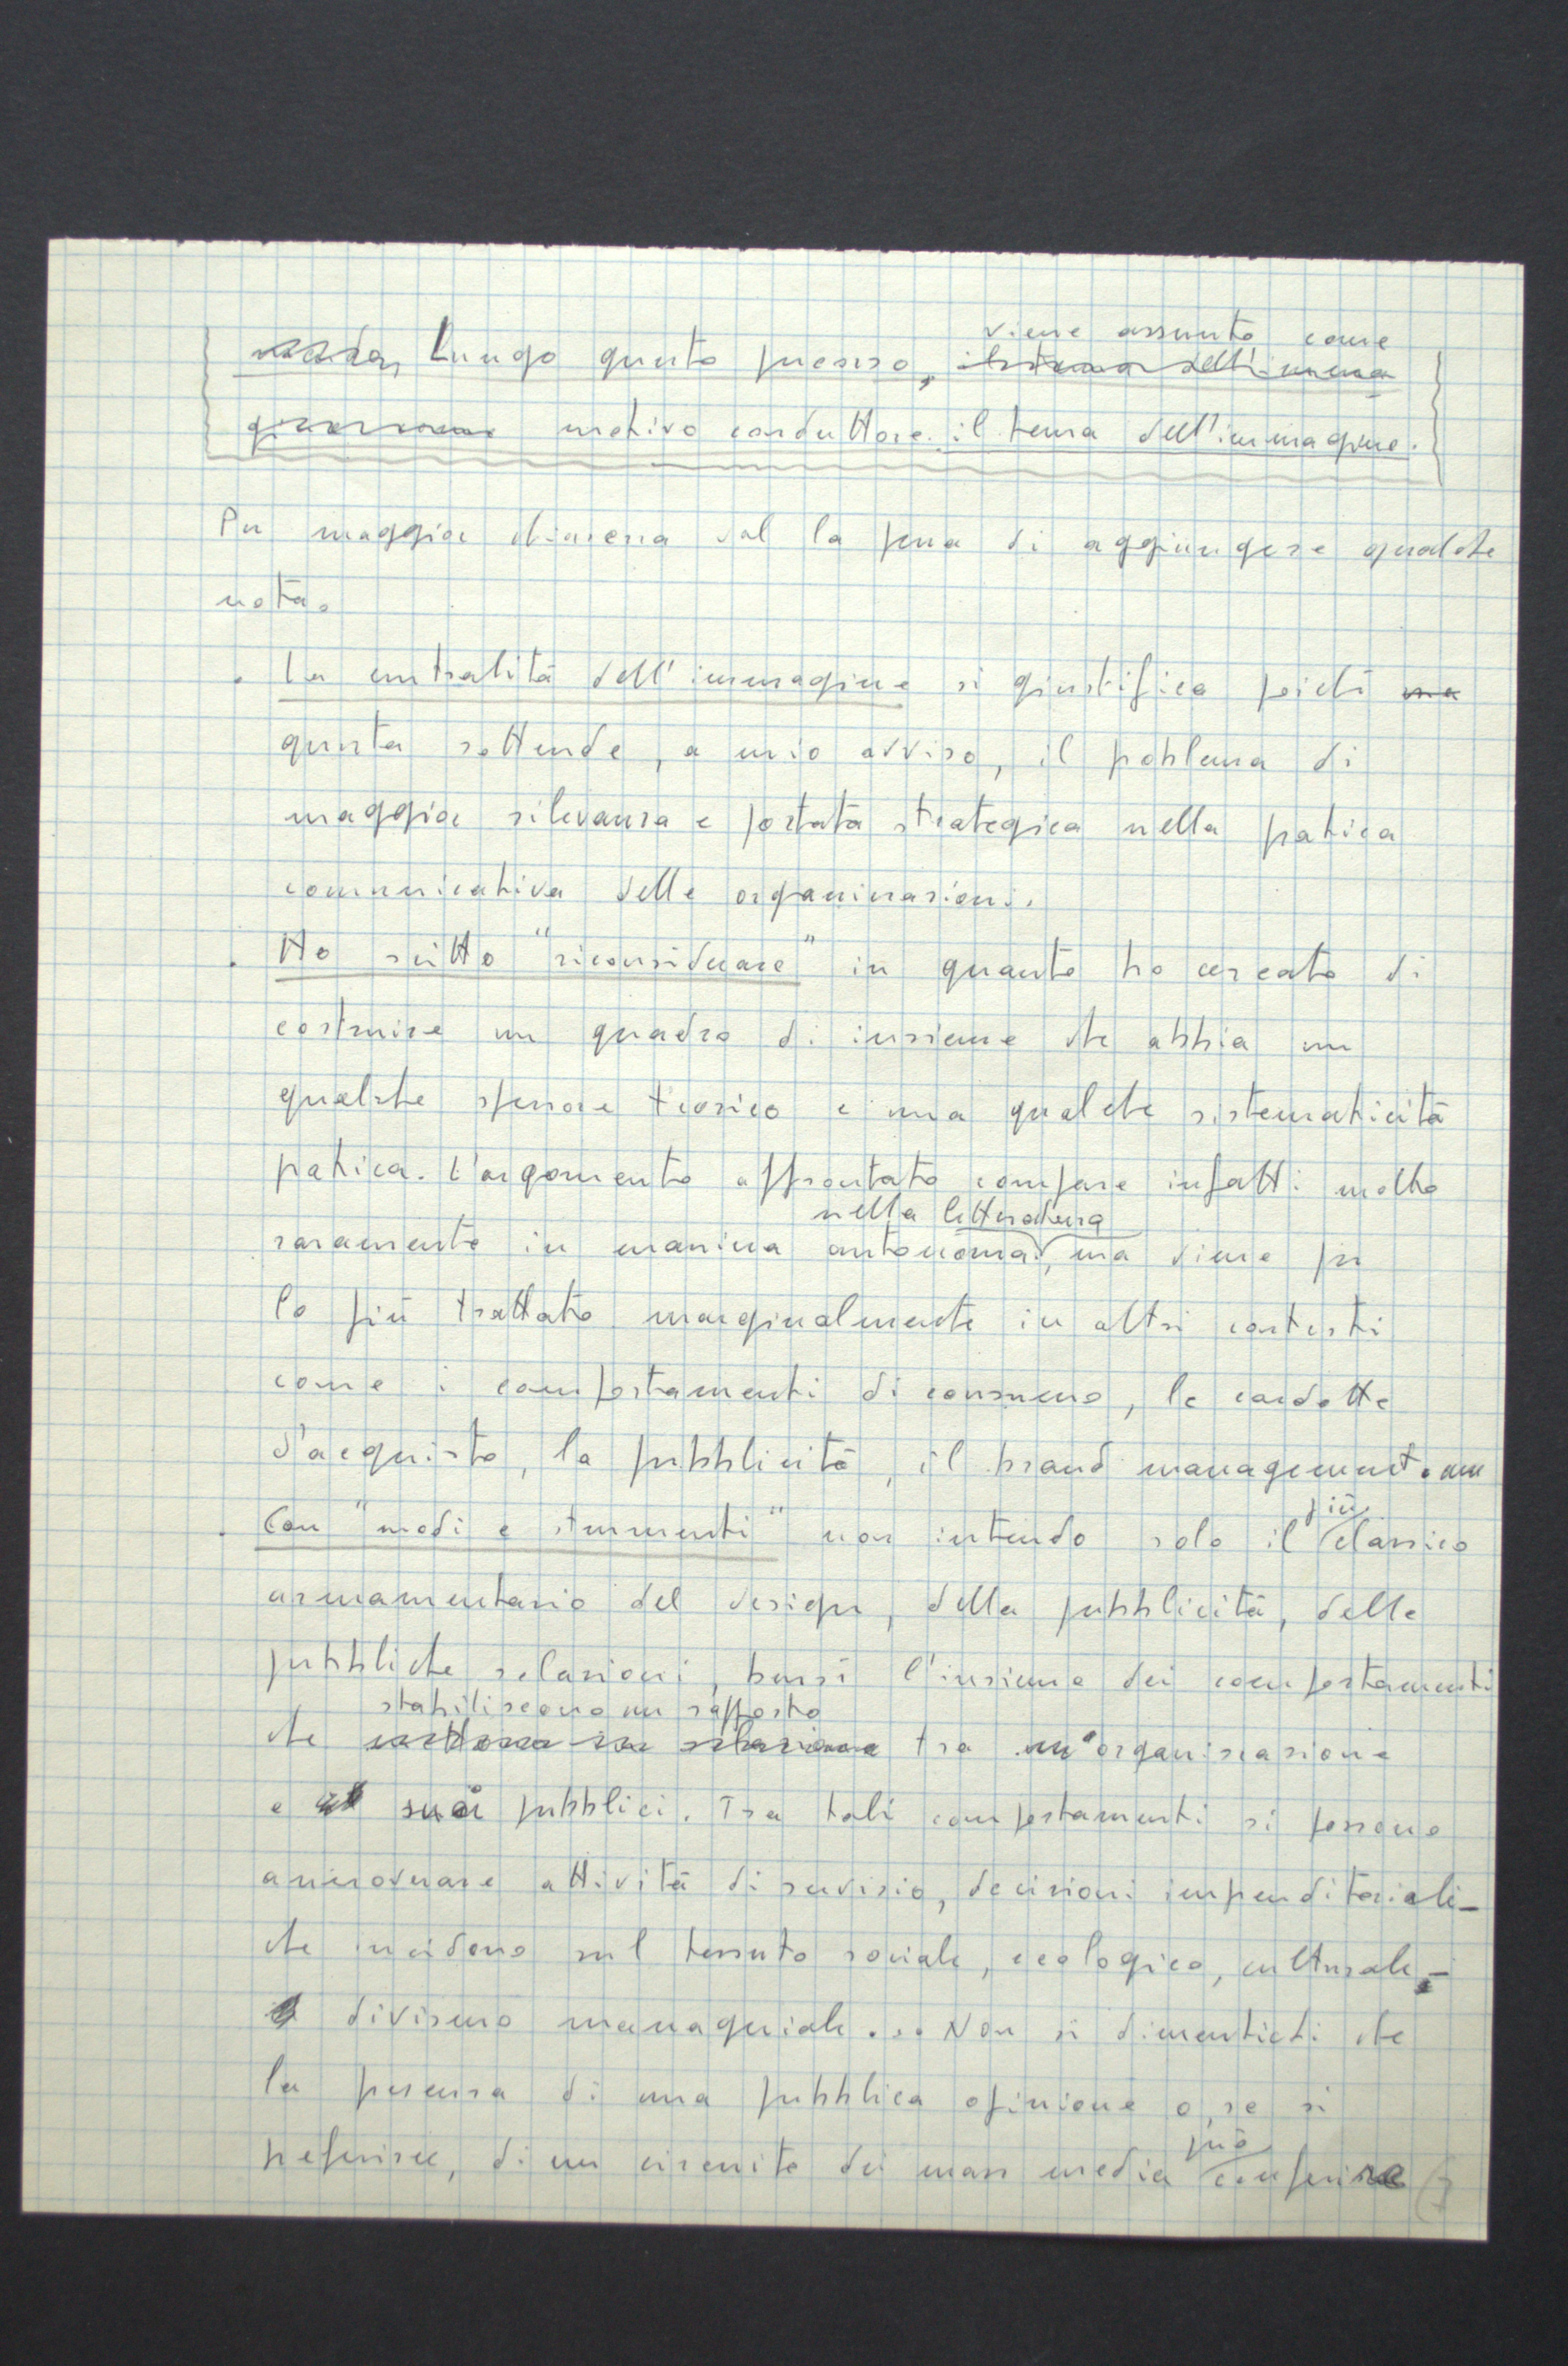 Lungo questo processo, viene assunto come
motivo conduttore il tema dell'immagine.
Per maggior chiarezza val la pena di aggiungere qualche
nota.
. La centralità dell'immagine si giustifica poiché
questa sottende, a mio avviso, il problema di
maggior rilevanza e portata strategica nella pratica
comunicativa delle organizzazioni.
. Ho scritto "riconsiderare" in quanto ho cercato di
costruire un quadro di insieme che abbia un
qualche spessore teorico e una qualche sistematicità
pratica. L'argomento affrontato compare infatti molto
raramente in maniera autonoma nella letteratura, ma viene per
lo più trattato marginalmente in altri contesti
come i comportamenti di consumo, le condotte
d'acquisto, la pubblicità, il brand management.
. Con "modi e strumenti" non intendo solo il più classico
armamentario del design, della pubblicità, delle
pubbliche relazioni, bensì l'insieme dei comportamenti
che stabiliscono un rapporto tra organizzazione
e suoi pubblici. Tra tali comportamenti si possono
annoverare attività di servizio, decisioni imprenditoriali-
che incidono sul tessuto sociale, ecologico, culturale-
divismo manageriale... Non si dimentichi che
la presenza di una pubblica opinione o, se si
preferisce, di un circuito dei mass media può conferire